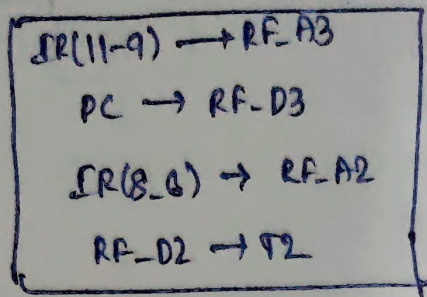 IR(11-9) → RF_A3
PC → RF_D3
IR(8_6) → RF_A2
RF_D2 → T2